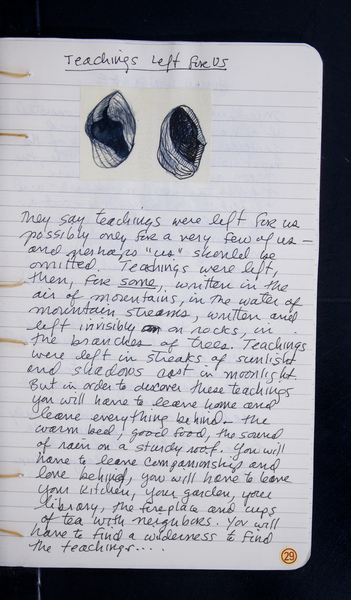 Teachings Left for Us
They say teachings were left for us
possibly only for a very few of us —
and perhaps "us" should be
omitted. Teachings were left,
then, for some, written in the
air of mountains, in the water of
mountain streams, written and
left invisibly on rocks, in
the branches of trees. Teachings
were left in streaks of sunlight
and shadows cast in moonlight.
But in order to discover these teachings
you will have to leave home and
leave everything behind — the
warm bed, good food, the sound
of rain on a sturdy roof. You will
have to leave companionship and
love behind, you will have to leave
your kitchen, your garden, your
library, the fireplace and cups
of tea with neighbors. You will
have to find a wilderness to find
the teachings....
29